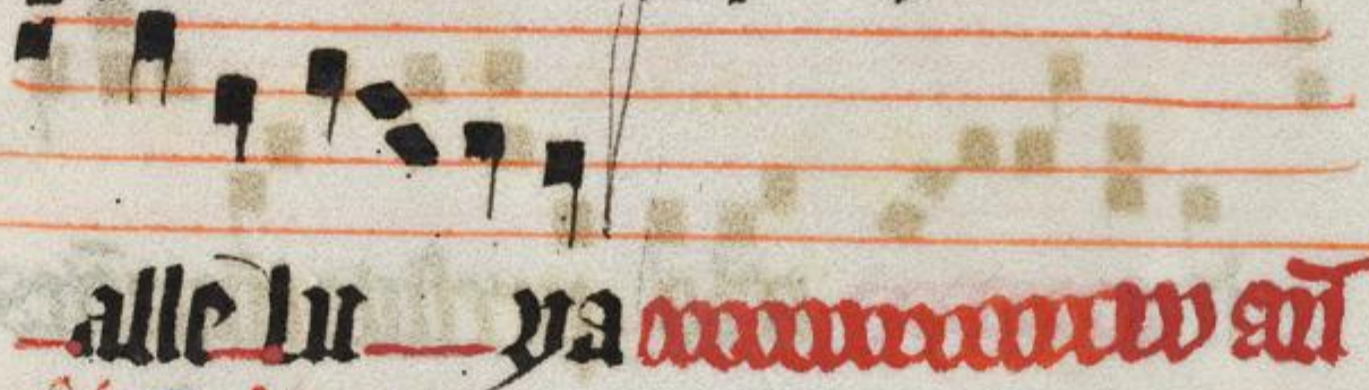 alle lu ya an̄